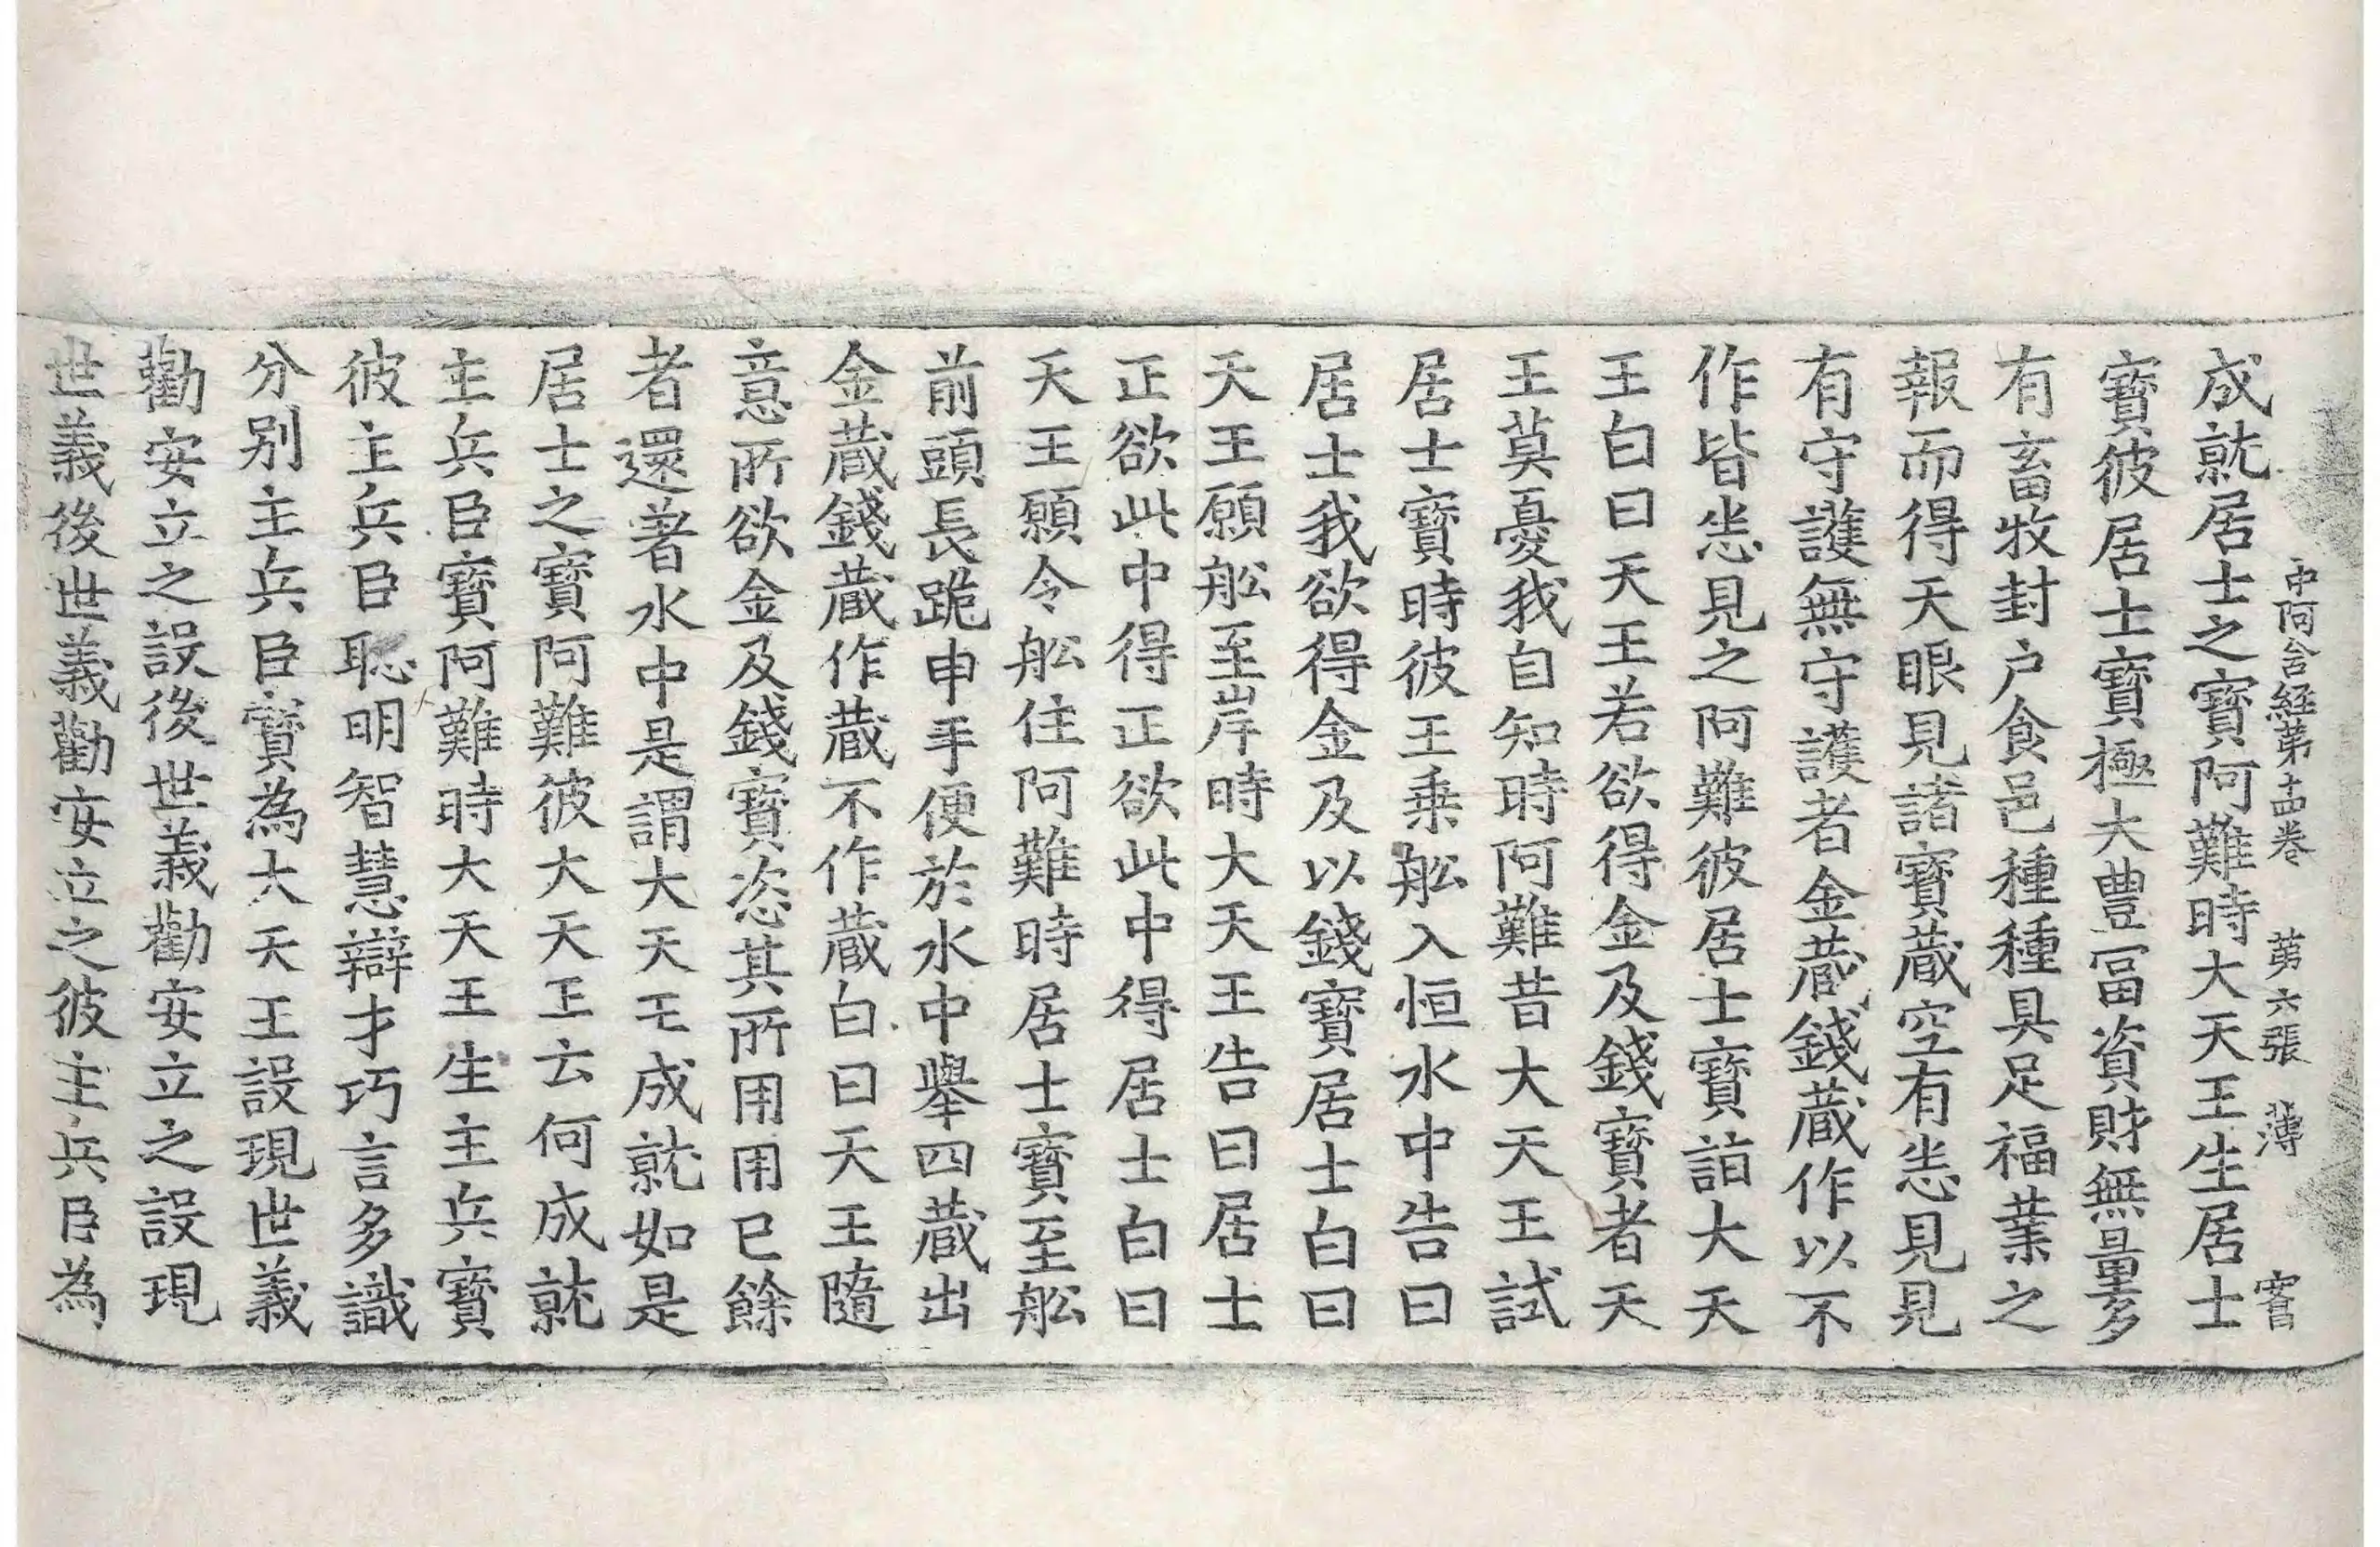 中阿含経第十四巻 第六張 薄 㝯
成就居士之寳阿難時大天王生居士
寳彼居士寳極大豊冨資財無量多
有畜牧封户食邑種種具足福業之
報而得天眼見諸寳蔵空有悉見見
有守護無守護者金蔵錢蔵作以不
作皆悉見之阿難彼居士寳詣大天
王白曰天王若欲得金及錢寳者天
王莫憂我自知時阿難昔大天王試
居士寳時彼王乗舩入恒水中告曰
居士我欲得金及以錢寳居士白曰
天王願舩至岸時大天王告曰居士
正欲此中得正欲此中得居士白曰
天王願令舩住阿難時居士寳至舩
前頭長跪申手便於水中擧四蔵出
金蔵錢蔵作蔵不作蔵白曰天王隨
意所欲金及錢寳恣其所用用已餘
者還著水中是謂大天王成就如是
居士之寳阿難彼大天王云何成就
主兵臣寳阿難時大天王生主兵寳
彼主兵臣聡明智慧辯才巧言多識
分别主兵臣寳為大天王設現世義
勸安立之設後世義勸安立之設現
世義後世義勸安立之彼主兵臣為